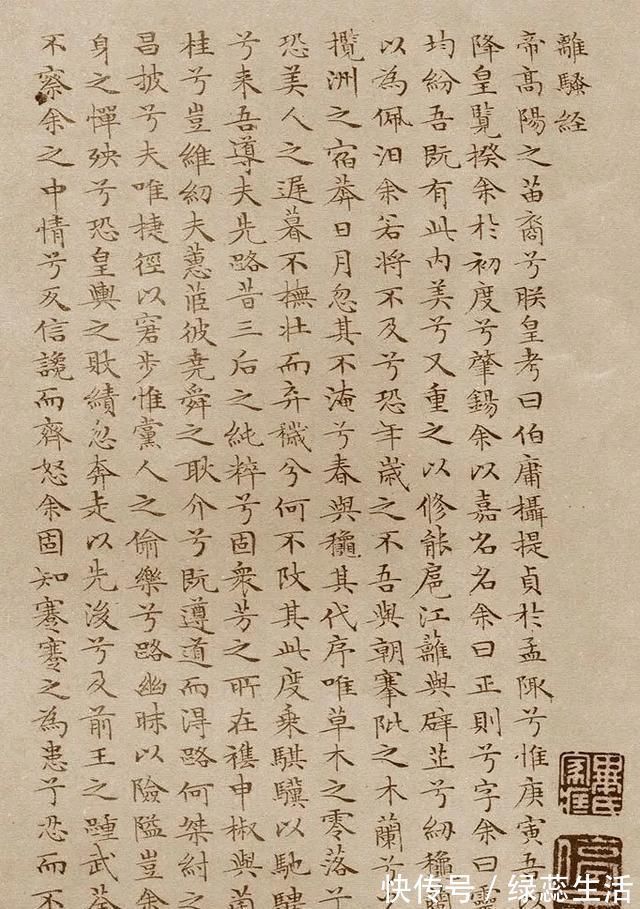 離騷経
帝高陽之苗裔兮朕皇考曰伯庸攝提貞於孟陬兮惟庚寅吾
降皇覽揆余於初度兮肇錫余以嘉名名余曰正則兮字余曰靈
均紛吾既有此內美兮又重之以修能扈江蘺與辟芷兮紉穐蘭
以為佩汨余若將不及兮恐年歲之不吾與朝搴阰之木蘭兮
攬洲之宿莽日月忽其不淹兮春與穐其代序唯草木之零落兮
恐美人之遅暮不撫壯而弃穢兮何不改其此度乗騏驥以馳騁
兮来吾導夫先路昔三后之純粹兮固衆芳之所在襍申椒與菌
桂兮豈維紉夫蕙茝彼堯舜之耿介兮既遵道而得路何桀紂之
昌披兮夫唯捷徑以窘步惟黨人之偷樂兮路幽昧以險隘豈余
身之憚殃兮恐皇輿之敗績忽奔走以先後兮及前王之踵武荃
不察余之中情兮反信讒而齊怒余固知謇謇之為患兮忍而不
畢氏
快传号/绿蕊生活